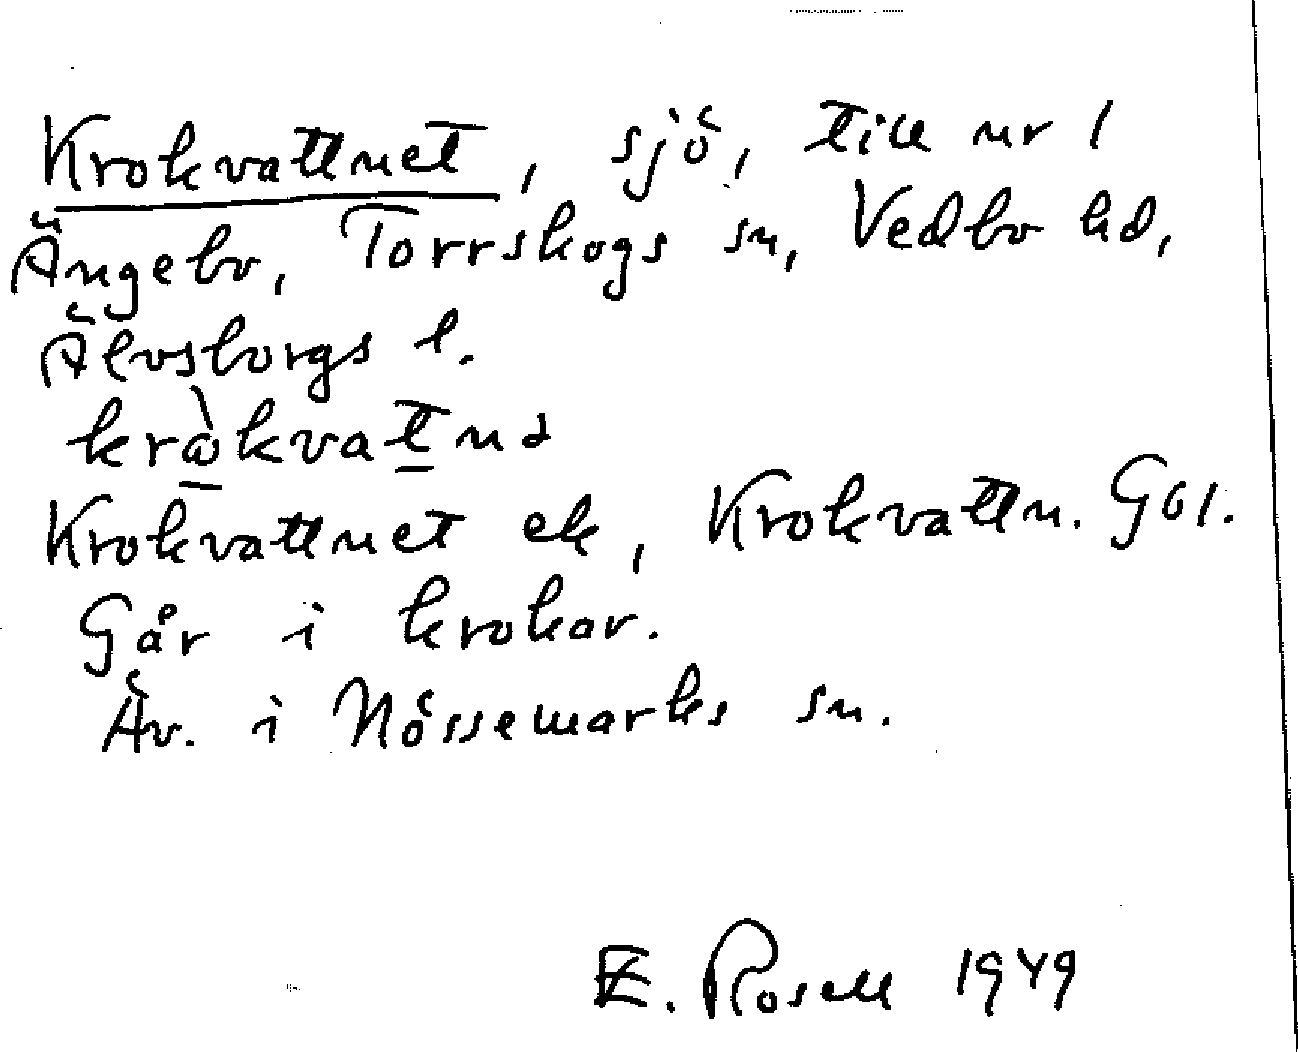 Krokvattnet, sjö, till nr 1
Ängebo, Torrskogs sn, Vedbo hd,
Älvsborgs l.
Krokvattnet ek, Krokvattn. GSI.
Går i krokar.
Äv. i Nössemarks sn.
E. Rosell 1949